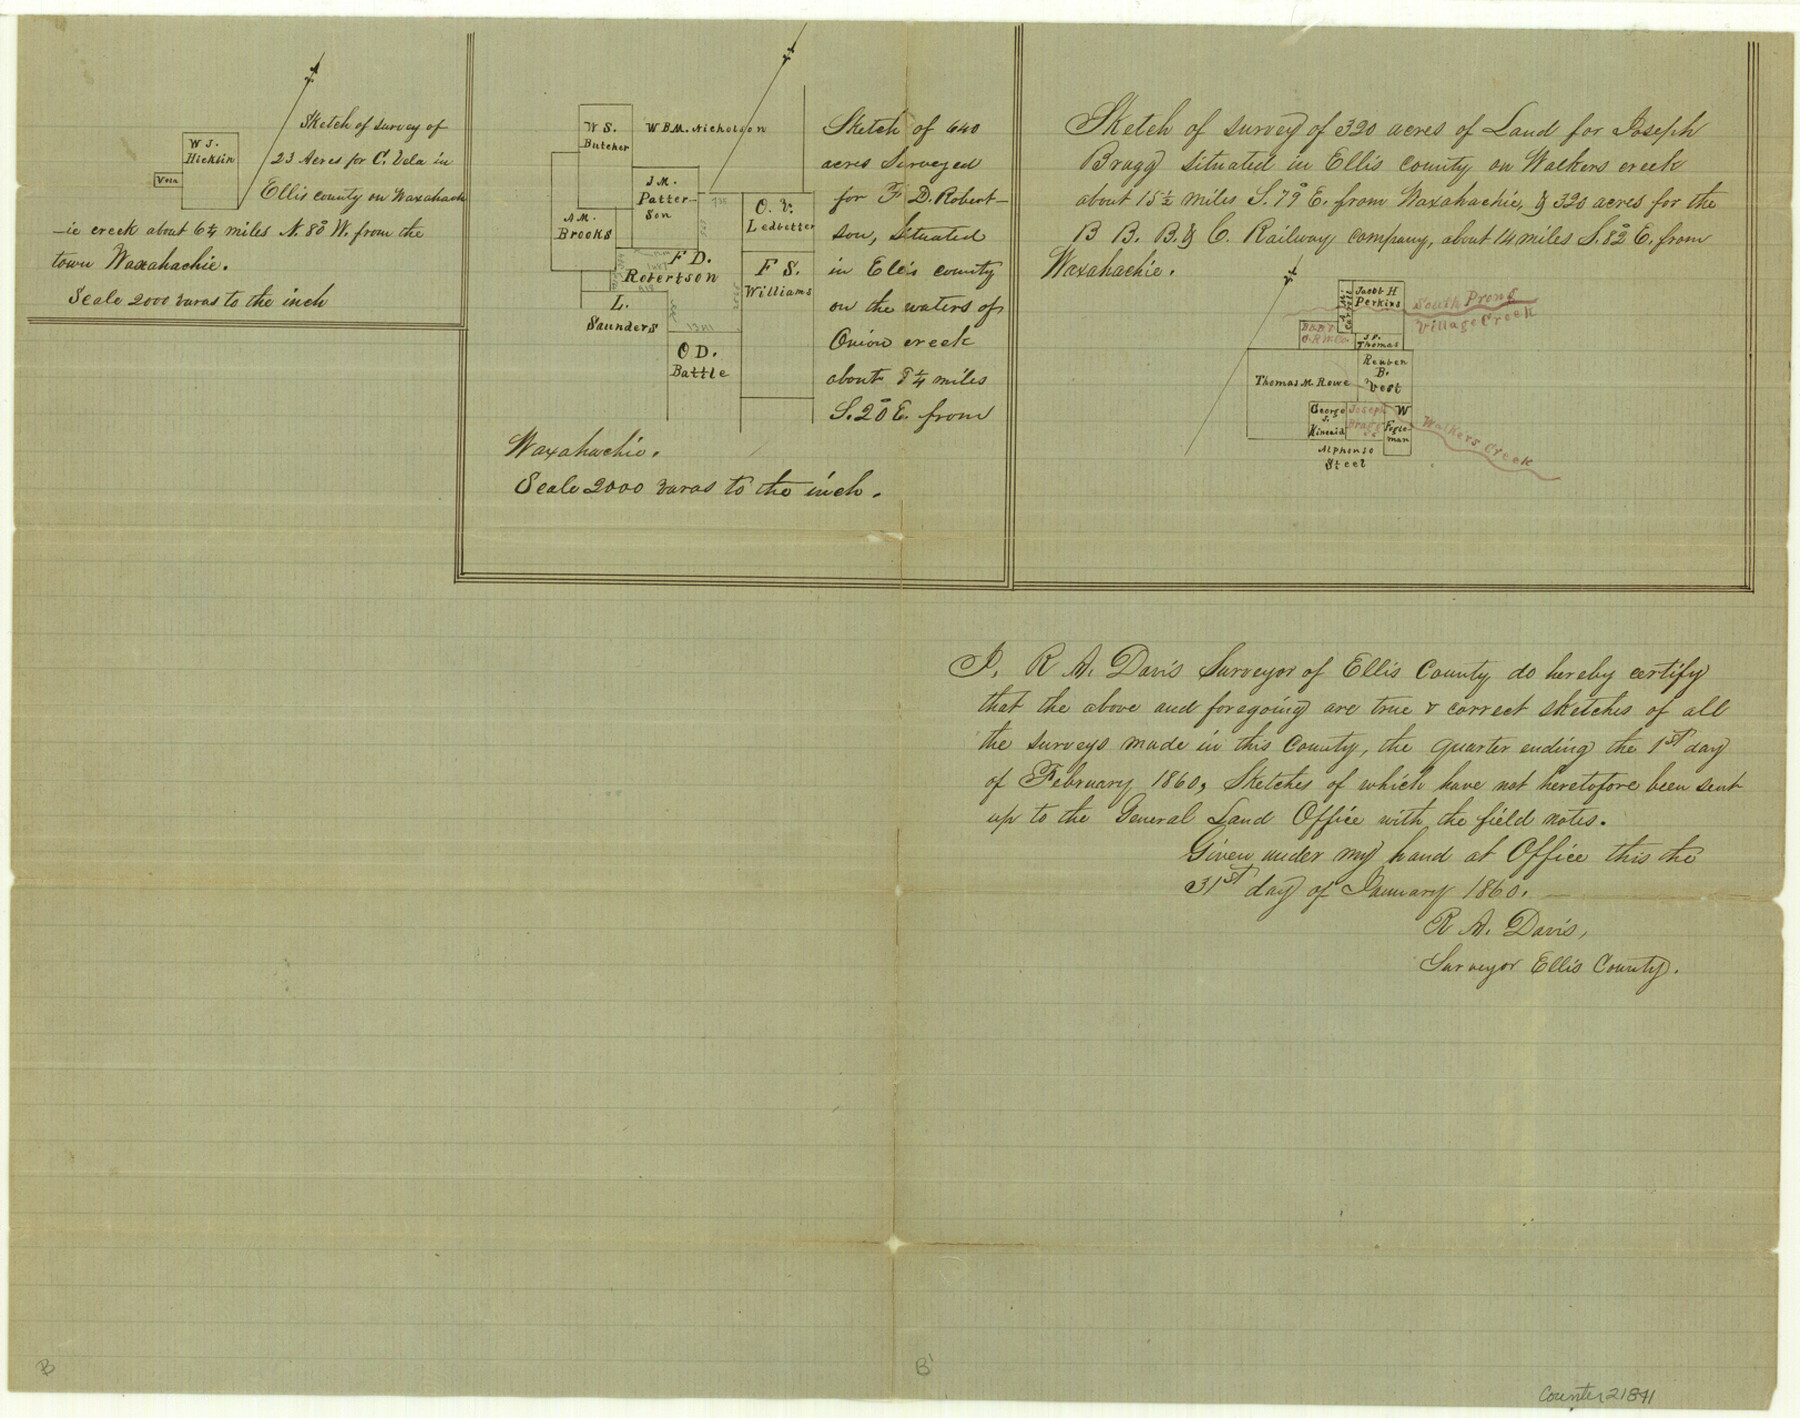 Sketch of survey of
23 Acres for C. Vela in
Ellis county on Waxahach
-ie creek about 6¼ miles N. 80° W. from the
town Waxahachie.
Scale 2000 varas to the inch
W J.
Hicklin
Vela
Sketch of 640
acres Surveyed
for F D. Robert-
son, Situated
in Ellis county
on the waters of
Onion creek
about 8¼ miles
S. 20° E. from
Waxahachie.
Scale 2000 varas to the inch.
W S.
Butcher
W B M. Nicholson
J. M.
Patter-
son
A M.
Brooks
O. V.
Ledbetter
F D.
Robertson
F S.
Williams
L.
Saunders
1341
O D.
Battle
Sketch of survey of 320 acres of Land for Joseph
Bragg situated in Ellis county on Walkers creek
about 15½ miles S. 79° E. from Waxahachie, & 320 acres for the
B B. B. & C. Railway company, about 14 miles S. 82° E. from
Waxahachie.
Jacob H
Perkins
South Prong
Village Creek
J. P.
Thomas
Thomas M. Rowe
Reuben
B.
Vest
George
J.
Kincaid
Joseph
Bragg
W
Fogle-
man
Walkers Creek
Alphonso
Steel
I, R A. Davis Surveyor of Ellis County do hereby certify
that the above and foregoing are true & correct sketches of all
the surveys made in this County, the quarter ending the 1st day
of February 1860, Sketches of which have not heretofore been sent
up to the General Land Office with the field notes.
Given under my hand at Office this the
31st day of January 1860.
R A. Davis,
Surveyor Ellis County.
B
B'
Counter 21841